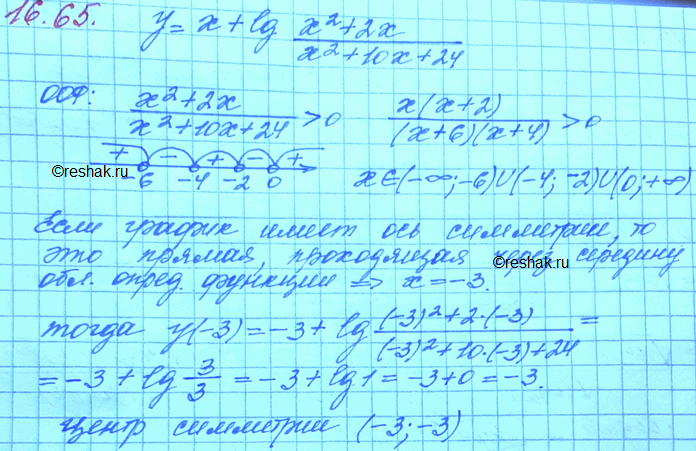 16.65. y = x + lg (x²+2x)/(x²+10x+24)
ООФ: (x²+2x)/(x²+10x+24) > 0 x(x+2)/((x+6)(x+4)) > 0
+ − + − +
©reshak.ru
-6 -4 -2 0 x∈(-∞;-6)∪(-4;-2)∪(0;+∞)
Если график имеет ось симметрии, то
это прямая, проходящая через середину
©reshak.ru
обл. опред. функции => x=-3.
тогда y(-3) = -3 + lg ((-3)²+2·(-3))/((-3)²+10·(-3)+24) =
= -3 + lg 3/3 = -3 + lg1 = -3+0 = -3.
Центр симметрии (-3;-3)